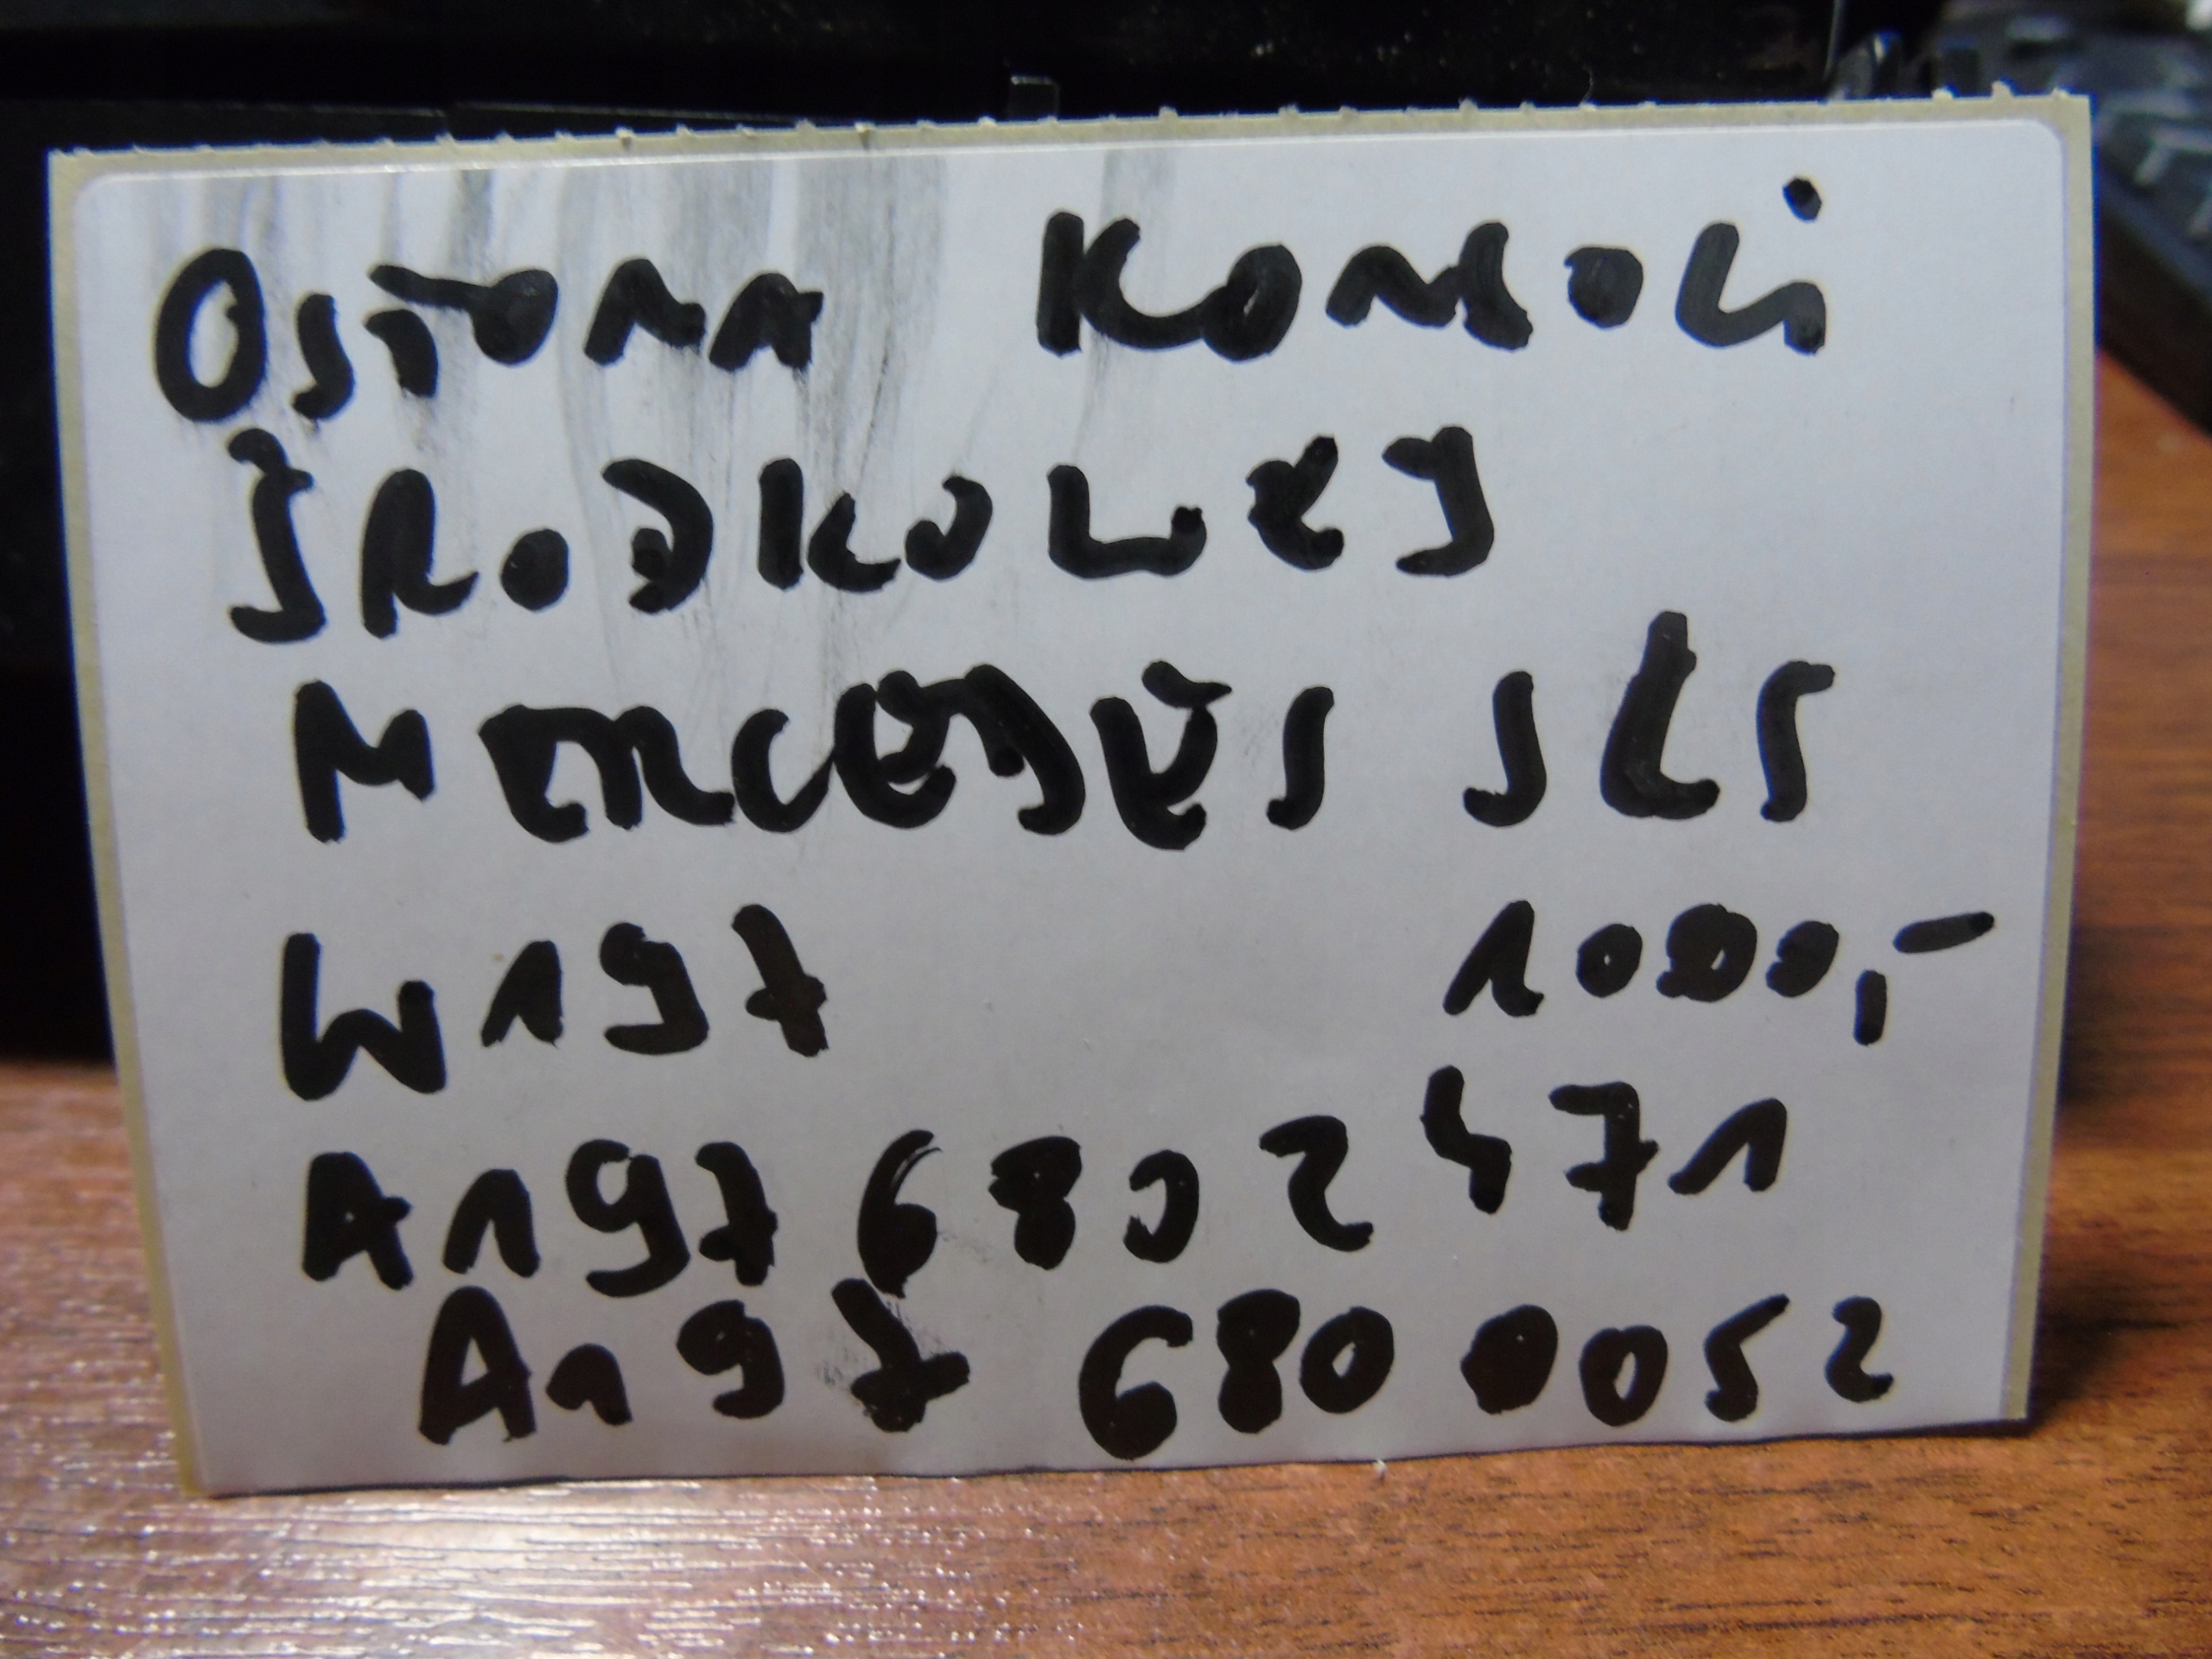 OSŁONA KONSOLI
ŚRODKOWEJ
MERCEDES SLS
W197 1000,-
A197 680 2471
A197 680 0052